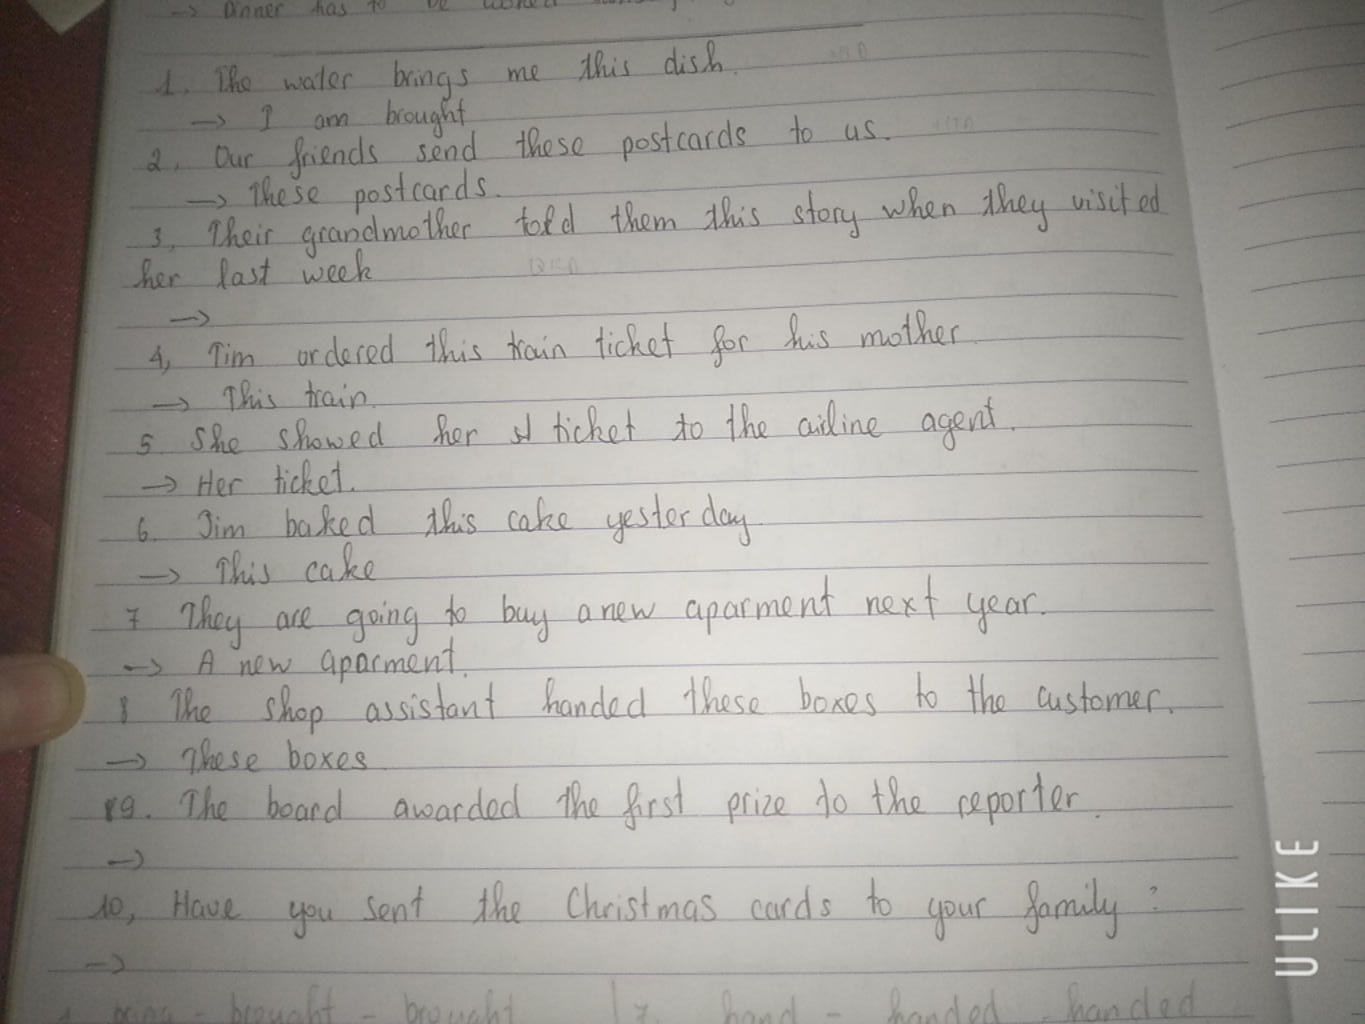 → Dinner has to be
1. The water brings me this dish
→ I am brought
2, Our friends send these postcards to us.
→ These postcards.
3, Their grandmother told them this story when they visited
her last week
→
4, Tim ordered this train ticket for his mother
→ This train.
5 She showed her ticket to the airline agent.
→ Her ticket.
6. Jim baked this cake yesterday
→ This cake
7 They are going to buy a new aparment next year.
→ A new aparment.
8 The shop assistant handed these boxes to the customer.
→ These boxes
9. The board awarded the first prize to the reporter.
→
10, Have you sent the Christmas cards to your family?
→
brought - brought 7. hand - handed - handed
ULIKE